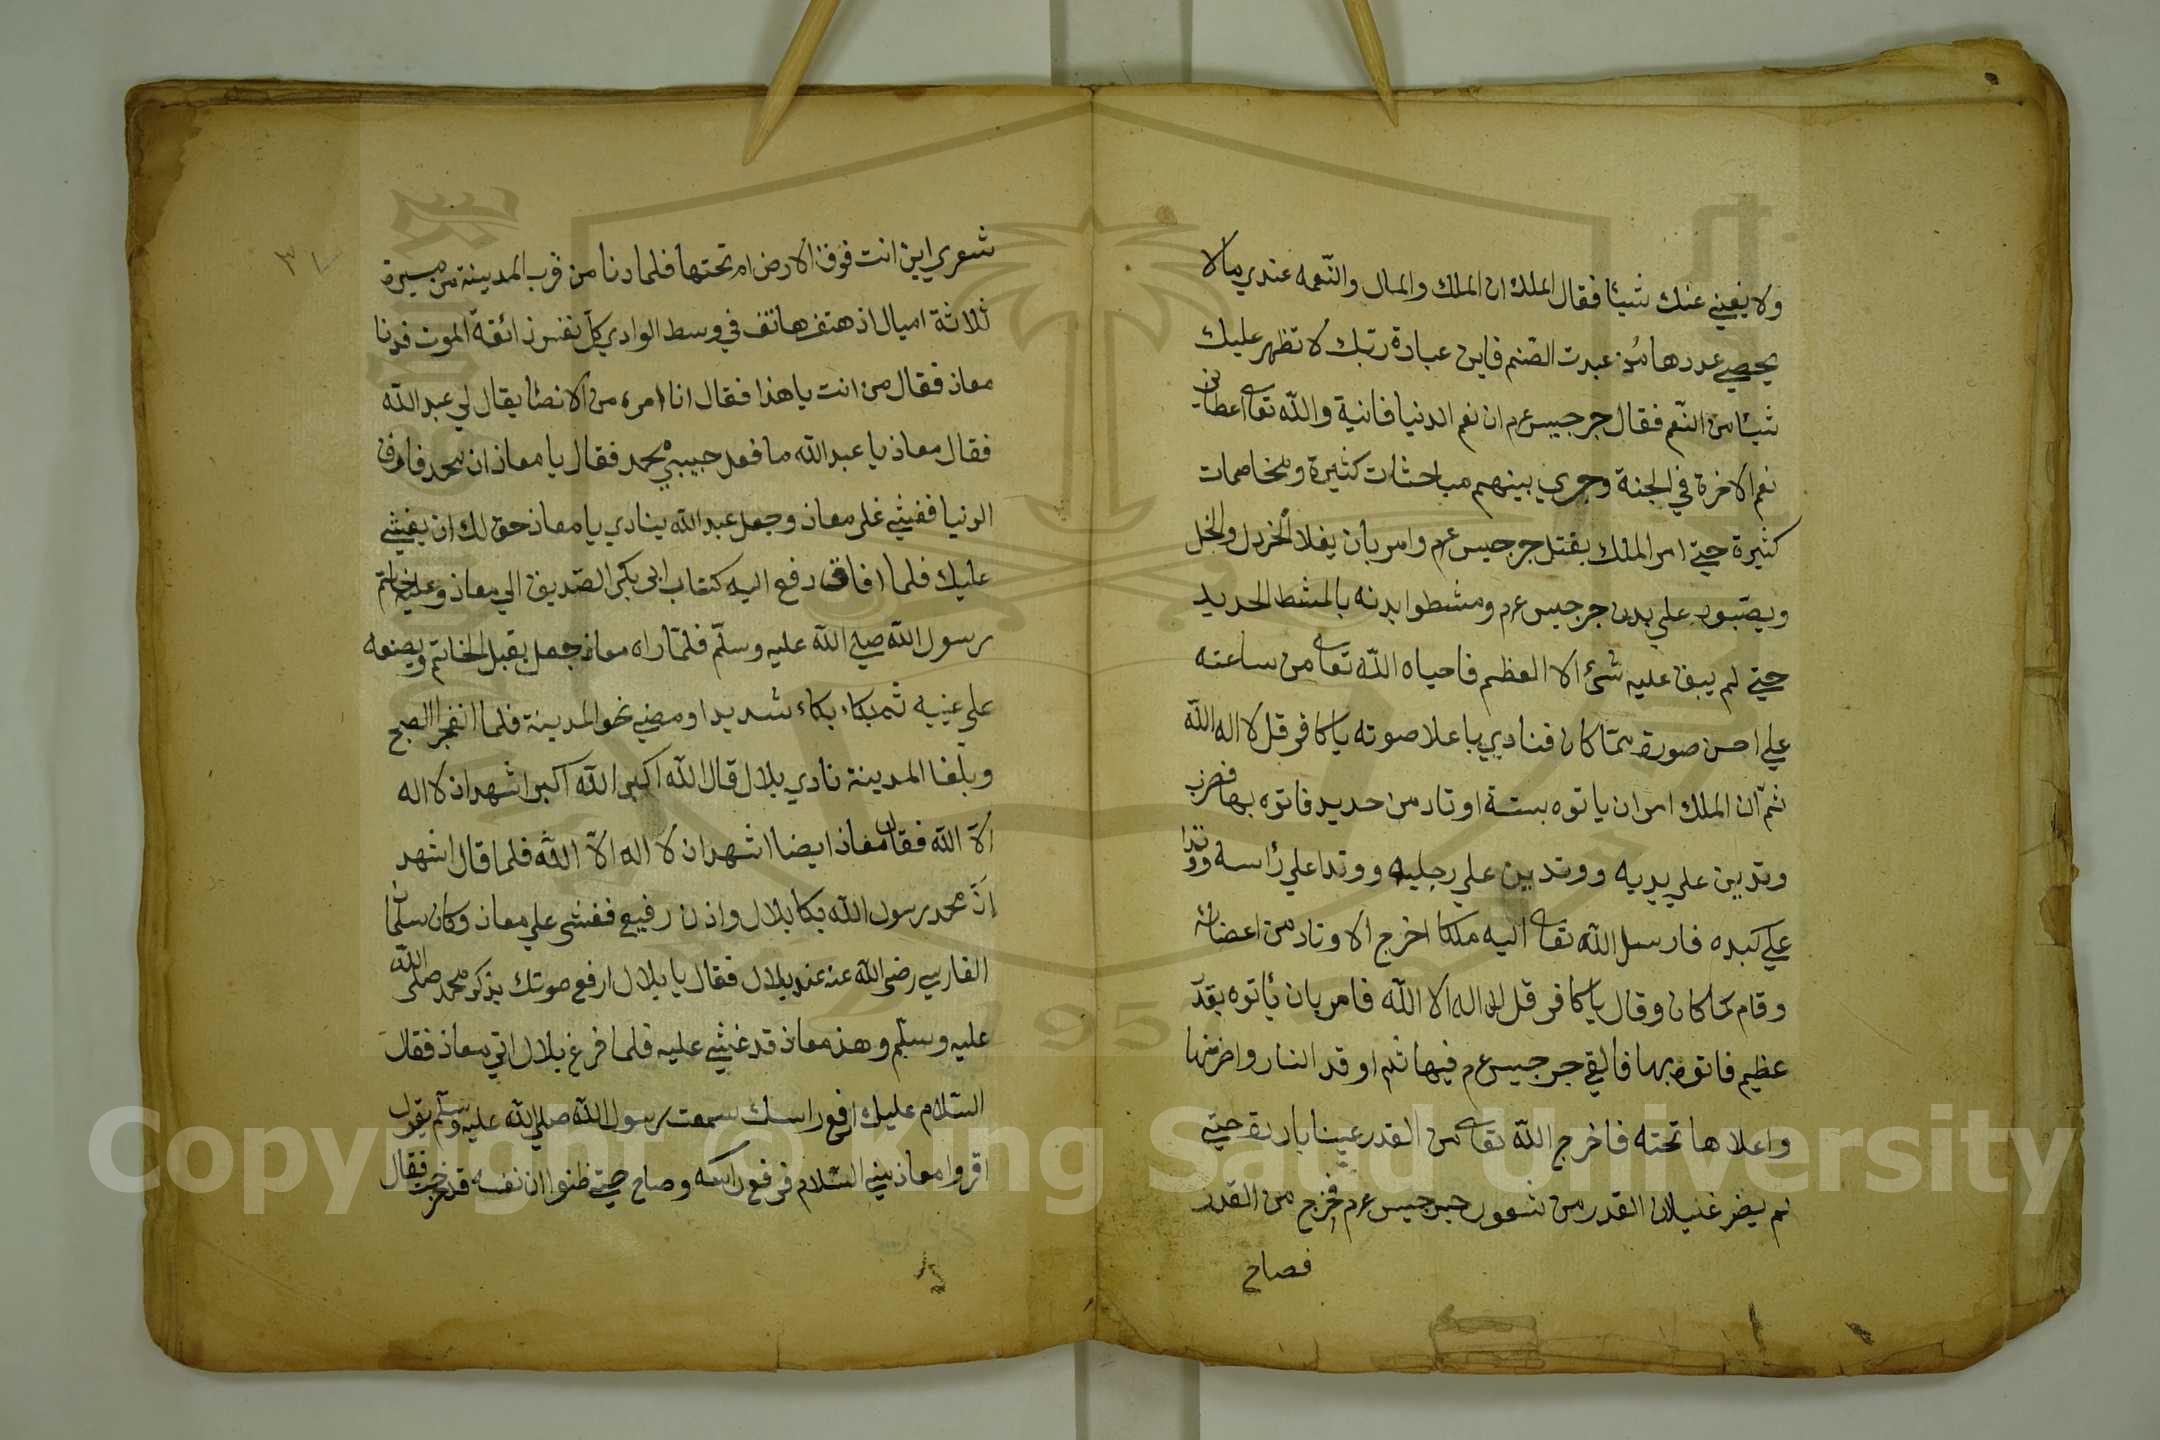 ولا يغني عنك شيئا فقال الملك ان الملك والمال والنّعمه عندي مالا
يحصي عددها مُنذ عبدت الصّنم فاين عبادة ربّك لا تظهر عليك
شيئا من النّعم فقال جرجيس عم ان نعم الدنيا فانية والله تعالى اعطاني
نعم الاخرة في الجنة وجري بينهم مباحثات كثيرة ومخاصمات
كثيرة حتي امر الملك بقتل جرجيس عم وامر بأن يغلا الخردل والخل
ويصّبون علي بدن جرجيس عم ومشطوا بدنه بالمشط الحديد
حتي لم يبق عليه شئ الا العظم فاحياه الله تعالى من ساعته
علي احسن صورة ممّا كان فنادي باعلا صوته ياكافر قل لا اله الا الله
ثمّ ان الملك امر ان ياتوه بستة اوتاد من حديد فاتوه بها فضرب
وتدين علي يديه ووتدين علي رجليه ووتدا علي رأسه ووتدا
علي كبده فارسل الله تعالى اليه ملكا اخرج الاوتاد من اعضائه
وقام كما كان وقال ياكافر قل لا اله الا الله فامر بان يأتوه بقدر
عظيم فاتوه بها فالقي جرجيس عم فيها ثم اوقد النار واضرمها
واعلاها تحته فاخرج الله تعالى من القدر عينا باردة حتي
لم يضر غليان القدر من شعور جرجيس عم فخرج من القدر
فصاح
شعري اين انت فوق الارض ام تحتها فلما دنا من قرب المدينة من مسيرة
ثلاثة اميال اذ هتف هاتف في وسط الوادي كلّ نفس ذائقة الموت فدنا
معاذ فقال من انت يا هذا فقال انا امرء من الانصار يقال لي عبد الله
فقال معاذ يا عبد الله ما فعل حبيبي محمد فقال يا معاذ ان محمد فارق
الدنيا فغشي علي معاذ وجعل عبد الله ينادي يا معاذ حق لك ان يغشي
عليك فلما افاق دفع اليه كتاب ابي بكر الصّديق الي معاذ وعليه خاتم
رسول الله صلي الله عليه وسلّم فلمّا راه معاذ جعل يقبل الخاتم ويضعه
علي عنيه ثم بكاء بكاء شديدا ومضي نحو المدينة فلما انفجر الصبح
وبلغا المدينة نادي بلال قال الله اكبر الله اكبر اشهد ان لا اله
الاّ الله فقال معاذ ايضا اشهد ان لا اله الاّ الله فلما قال اشهد
انّ محمد رسول الله بكا بلال واذن رفيع فغشى علي معاذ وكان سلمان
الفارسي رضى الله عنه عند بلال فقال يا بلال ارفع صوتك بذكر محمد صلى الله
عليه وسلّم وهذ معاذ قد غشي عليه فلما فرغ بلال اتي معاذ فقال
السّلام عليك ارفع راسك سمعت رسول الله صلي الله عليه وسلّم يقول
اقروا معاذ مني السّلام فرفع رأسه وصاح حتي ظنوا ان نفسه قد خرجت فقال
Copyright © King Saud University